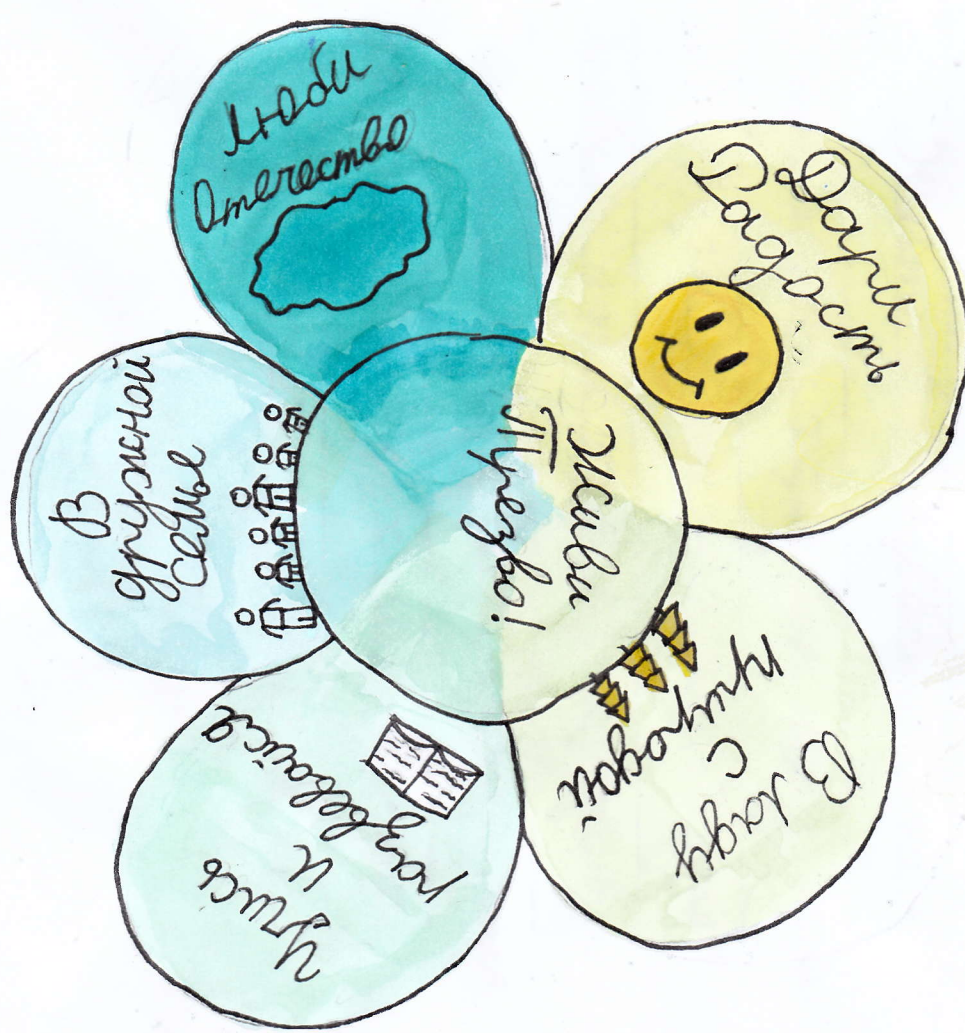 Люби
Отечество
Дари
Радость
Живи
Трезво!
В
дружной
семье
В ладу
с
природой
Учись
и
развевайся